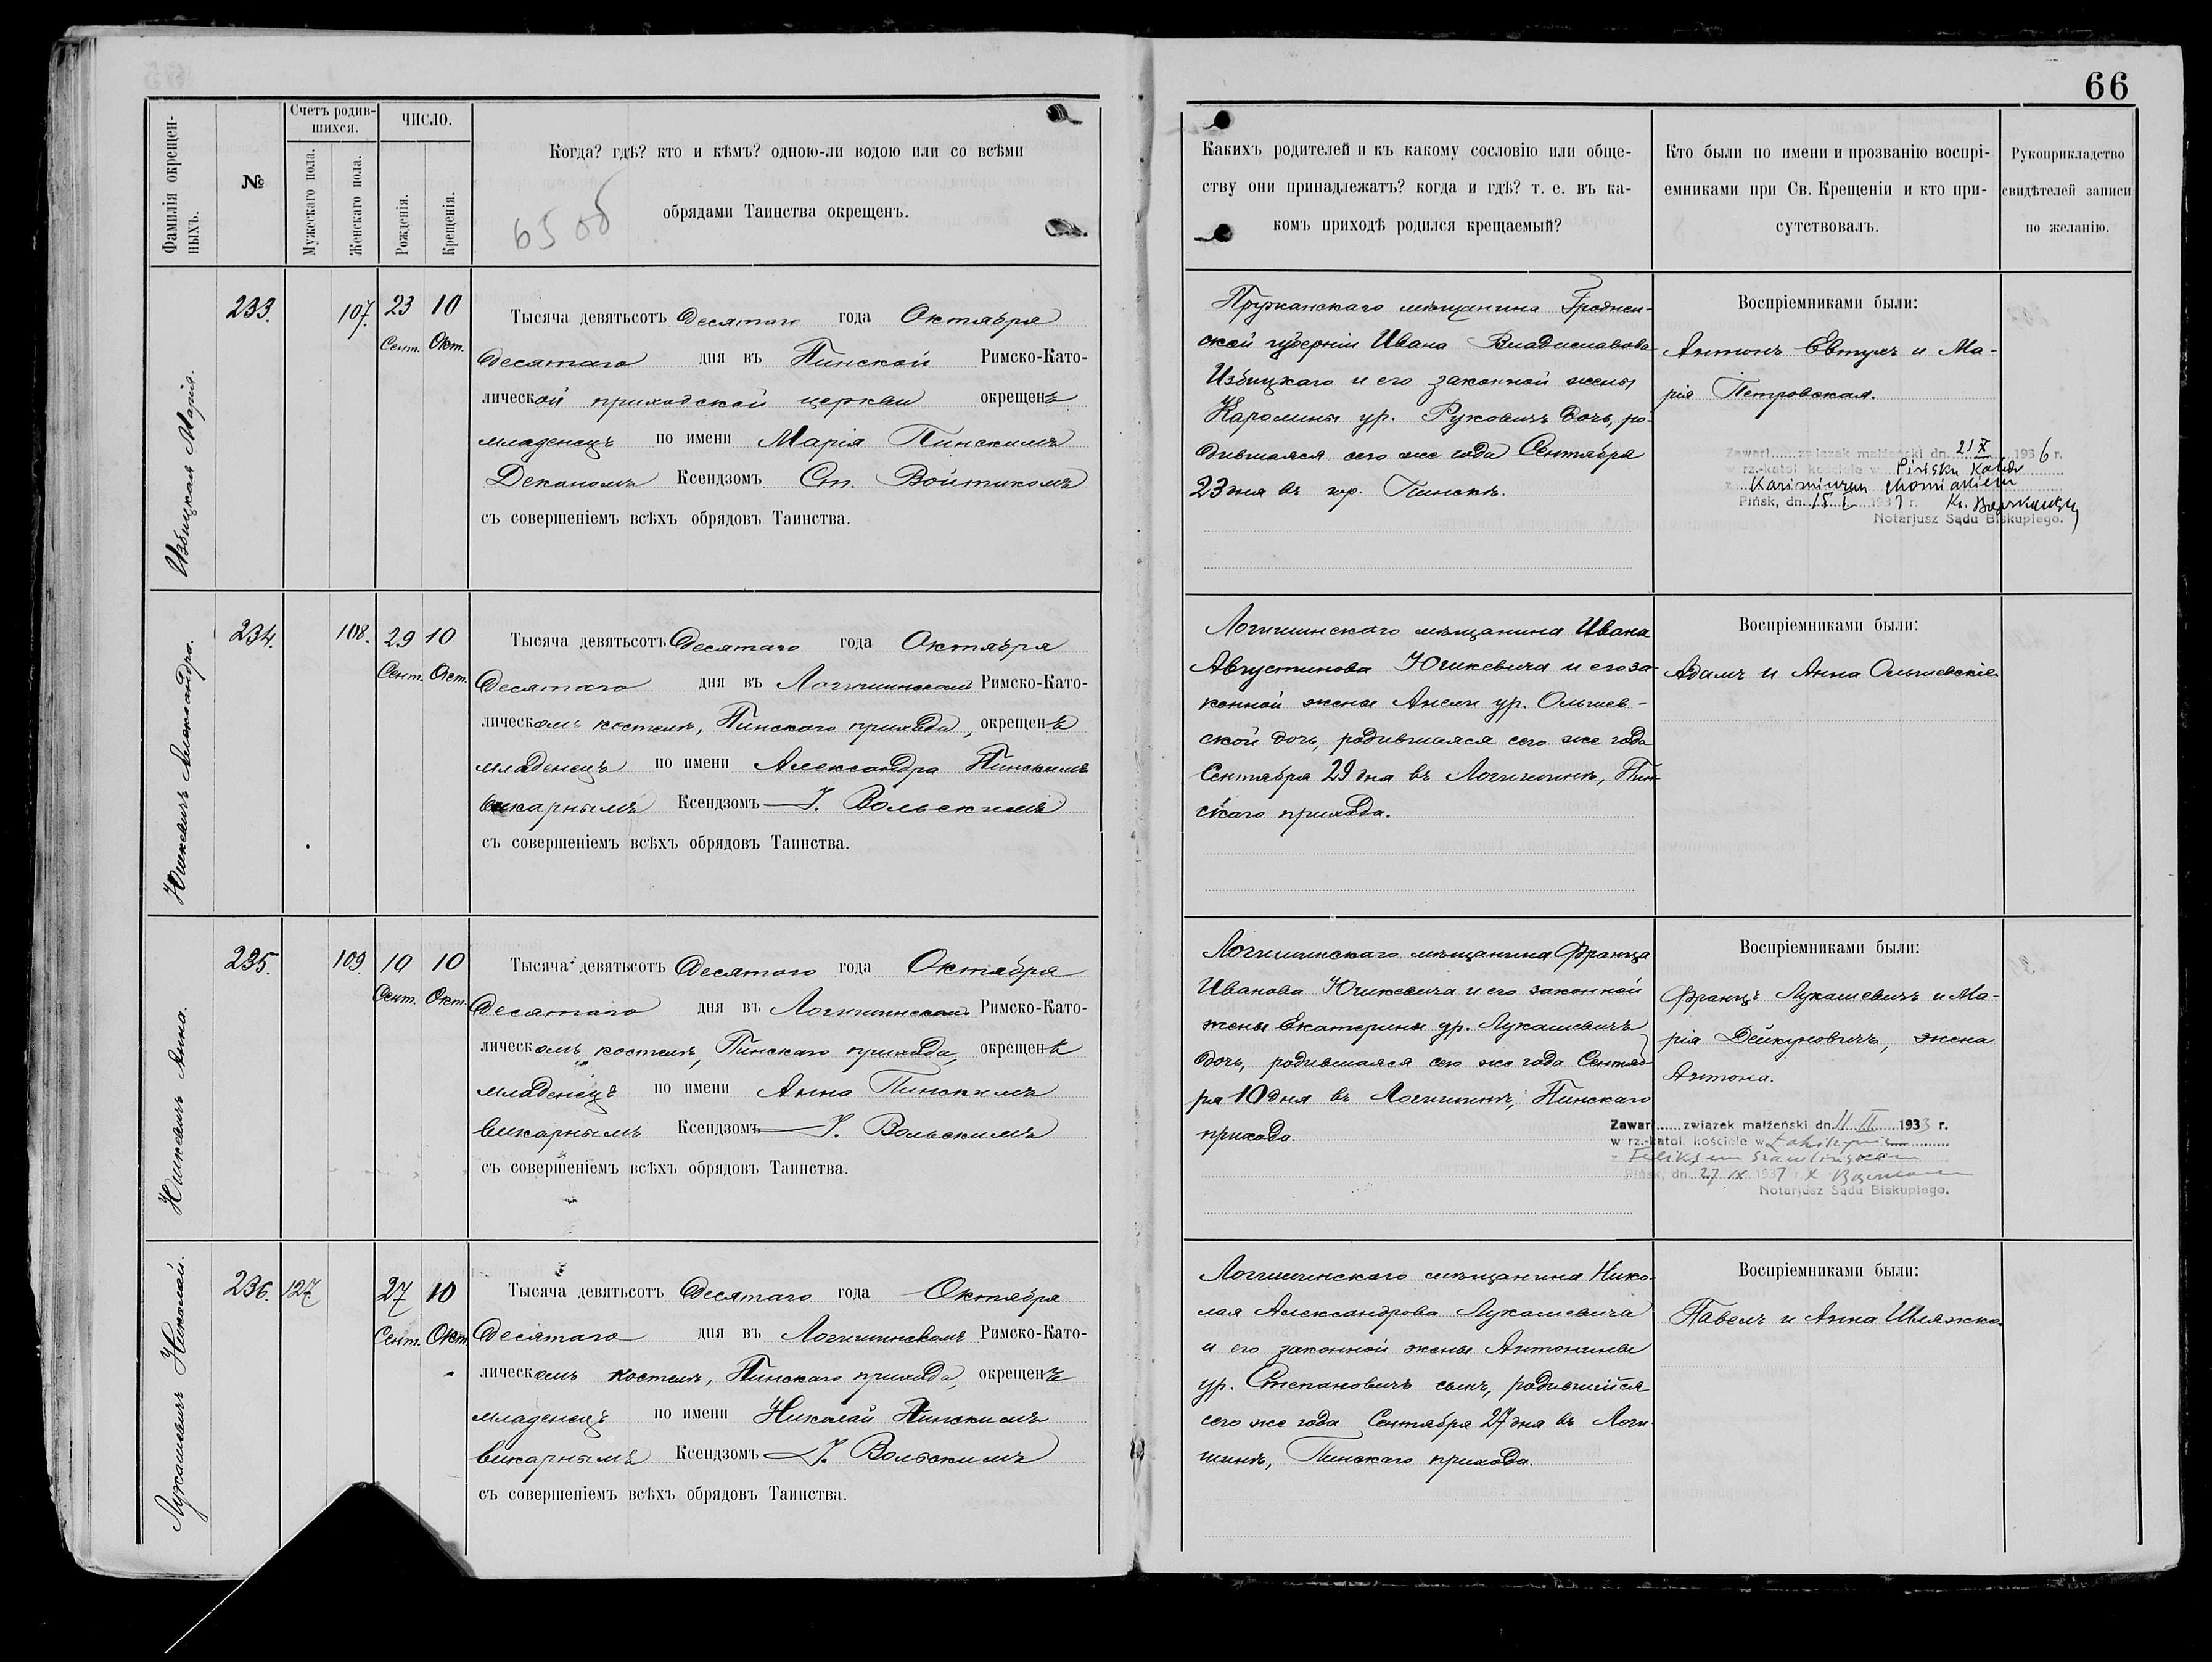 66
Фамилія окрещен-
ныхъ.
№
Счетъ родив-
шихся.
Мужескаго пола.
Женскаго пола.
ЧИСЛО.
Рожденія.
Крещенія.
Когда? гдѣ? кто и кѣмъ? одною-ли водою или со всѣми
обрядами Таинства окрещенъ.
65 об
Какихъ родителей и къ какому сословію или обще-
ству они принадлежатъ? когда и гдѣ? т. е. въ ка-
комъ приходѣ родился крещаемый?
Кто были по имени и прозванію воспрі-
емниками при Св. Крещеніи и кто при-
сутствовалъ.
Рукоприкладство
свидѣтелей записи
по желанію.
Избицкая Марія.
233.
107.
23
Сент.
10
Окт.
Тысяча девятьсотъ Десятаго года Октября
десятаго дня въ Пинской Римско-Като-
лической приходской церкви окрещенъ
младенецъ по имени Марія Пинскимъ
Деканомъ Ксендзомъ Ст. Войтикомъ
съ совершеніемъ всѣхъ обрядовъ Таинства.
Пружанскаго мѣщанина Гроднен-
ской губерніи Ивана Владиславова
Избицкаго и его законной жены
Каролины ур. Руковичъ дочь, ро-
дившаяся сего же года Сентября
23 дня въ гор. Пинскѣ.
Воспріемниками были:
Антонъ Евтухъ и Ма-
рія Петровская.
Zawarł związek małżeński dn. 21 X 1936 r.
w rz.-katol. kościele w Pińsku Kated
z Kazimierzem
Pińsk, dn. 15 I 1937 r. Ks.
Notarjusz Sądu Biskupiego.
Юшкевичъ Александра.
234.
108.
29
Сент.
10
Окт.
Тысяча девятьсотъ Десятаго года Октября
Десятаго дня въ Логишинскомъ Римско-Като-
лическомъ костелѣ, Пинскаго прихода, окрещенъ
младенецъ по имени Александра Пинскимъ
викарнымъ Ксендзомъ І. Вольскимъ
съ совершеніемъ всѣхъ обрядовъ Таинства.
Логишинскаго мѣщанина Ивана
Августинова Юшкевича и его за-
конной жены Анели ур. Ольшев-
ской дочь, родившаяся сего же года
Сентября 29 дня въ Логишинѣ, Пин-
скаго прихода.
Воспріемниками были:
Адамъ и Анна Ольшевскіе.
Юшкевичъ Анна.
235.
109.
10
Сент.
10
Окт.
Тысяча девятьсотъ Десятаго года Октября
Десятаго дня въ Логишинскомъ Римско-Като-
лическомъ костелѣ, Пинскаго прихода, окрещенъ
младенецъ по имени Анна Пинскимъ
викарнымъ Ксендзомъ І. Вольскимъ
съ совершеніемъ всѣхъ обрядовъ Таинства.
Логишинскаго мѣщанина Франца
Иванова Юшкевича и его законной
жены Екатерины ур. Лукашевичъ
дочь, родившаяся сего же года Сентяб-
ря 10 дня въ Логишинѣ, Пинскаго
прихода.
Воспріемниками были:
Францъ Лукашевичъ и Ма-
рія Дейкуновичъ, жена
Антона.
Zawarł związek małżeński dn. 11 II 1933 r.
w rz.-katol. kościele w
z Feliksem
Pińsk, dn. 27 IX 1937 r.
Notarjusz Sądu Biskupiego.
Лукашевичъ Николай.
236.
127.
27
Сент.
10
Окт.
Тысяча девятьсотъ Десятаго года Октября
Десятаго дня въ Логишинскомъ Римско-Като-
лическомъ костелѣ, Пинскаго прихода, окрещенъ
младенецъ по имени Николай Пинскимъ
викарнымъ Ксендзомъ І. Вольскимъ
съ совершеніемъ всѣхъ обрядовъ Таинства.
Логишинскаго мѣщанина Нико-
лая Александрова Лукашевича
и его законной жены Антонины
ур. Степановичъ сынъ, родившійся
сего же года Сентября 27 дня въ Логи-
шинѣ, Пинскаго прихода.
Воспріемниками были:
Павелъ и Анна Шляжко.